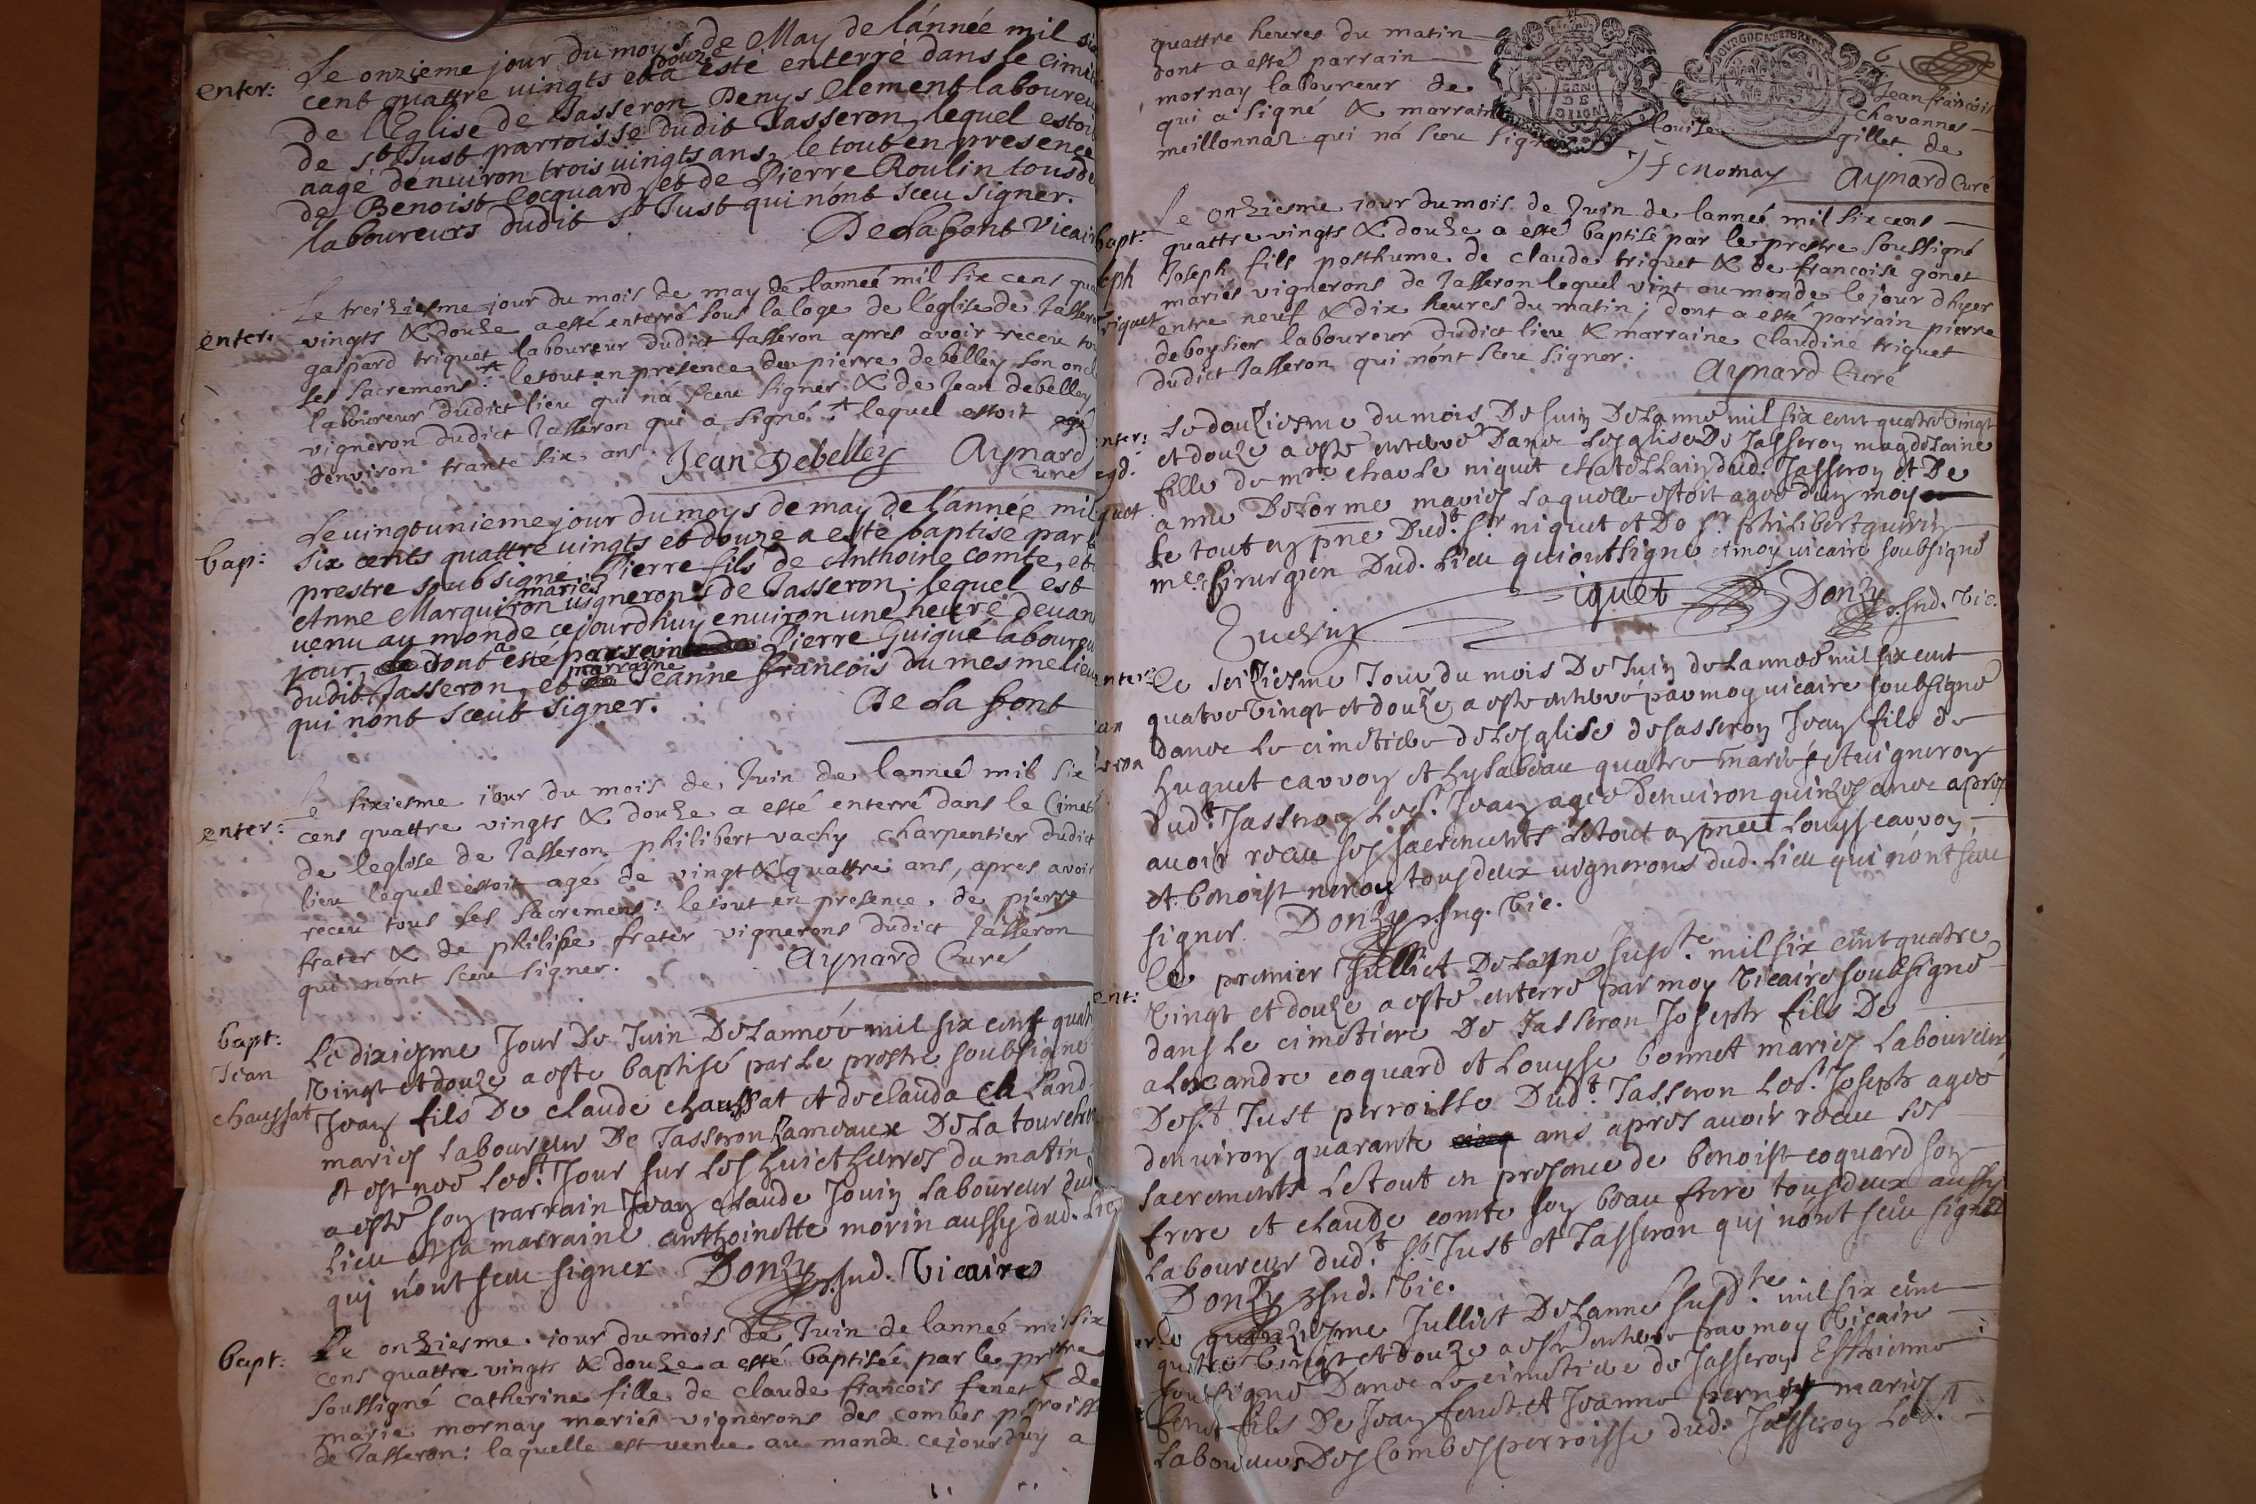 enter: Le onzieme jour du moys de May de lánnée mil six
cent quattre vingts et douze a esté enterré dans le cime
de l'Eglise de Jasseron Denys Clement laboureu
de st Just parroisse dudit Jasseron, lequel estoi
aagé denuiron trois uingts ans, le tout en presence
de Benoist Cocquard, et de Pierre Roulin tous d
laboureurs dudit st Just qui nónt sceu signer.
De Lafont Vicair
enter: Le treiziesme jour du mois de may de lanneé mil six cens qua
vingts & douze a esté enterré sous la loge de leglise de Jassero
gaspard triquet laboureur dudict Jasseron apres avoir receu to
ses sacremens: + le tout en présence de pierre debelley son oncl
laboureur dudict lieu qui ná sceu signer & de Jean debelley
vigneron dudict Jasseron qui a signé: + lequel estoit agé
denviron trante six ans. Jean Debelley Aynard
Curé
Le uingt unieme jour du moys de may de lánnée mil
bap: six cents quattre uingts et douze a esté baptisé par l
prestre soubsigné, Pierre fils de Anthoine Comte, et
mariés
Anne Marquiron uignerons de Jasseron; lequel est
uenu au monde ce jourdhuy enuiron une heure deuan
jour, dont a esté parrain Pierre Guigué laboureu
marraine
dudit Jasseron, et Jeanne françois du mesme lieu
qui nónt sceut signer. De La font
Le sixiesme jour du mois de Juin de lanneé mil six
enter: cens quattre vingts & douze a esté enterré dans le Cimeti
de leglise de Jasseron philibert vachy charpentier dudict
lieu lequel estoit agé de vingt & quattre ans, apres avoir
receu tous ses sacremens: le tout en presence de pierre
frater & de philipe frater vignerons dudict Jasseron
qui nónt sceu signer. Aynard Curé
bapt: Le dixiesme Jour De Juin De Lannéé mil six cent quat
Jean Vingt et douze a esté baptisé par Le prestre soubsigné
chaussat Jean fils De claude chaussat et de clauda
mariés Laboureurs De Jasseron hameaux De La tour
et est néé Led.t Jour sur Les huict heures du matin
a esté son parrain Jean claude Jouin Laboureur dud
Lieu et sa marraine anthoinette morin aussy dud. Lieu
qui nónt sceu signer Donzy Vicaire
bapt: Le onziesme jour du mois de Juin de lanneé mil six
cens quattre vingts & douze a esté baptisée par le prestre
soussigné Catherine fille de claude françois fenet & de
marie mornay mariés vignerons des combes parroisse
de Jasseron: laquelle est venue au monde ce jourdhuy a
quattre heures du matin
dont a esté parrain Jean françois
mornay laboureur de chavannes
qui a signé & marraine Louize gillet de
meillonnas qui ná sceu signer
Jf mornay Aynard Curé
6
GEN. DE
BOURGOGNE ET BRESSE
bapt: Le onziesme jour du mois de Juin de lanneé mil six cens
quattre vingts & douze a esté baptisé par le prestre soussigné
eph Joseph fils posthume de claude triquet & de françoise gonet
mariés vignerons de Jasseron lequel vint au monde le jour dhyer
riquet entre neuf & dix heures du matin; dont a esté parrain pierre
deboysier laboureur dudict lieu & marraine Claudine triquet
dudict Jasseron qui nónt sceu signer. Aynard Curé
nter: Le douziesme du mois De Juin De Lanné mil six cent quatre Vingt
et douze a esté enterré Dans Lesglise De Jasseron magdelaine
gd: fille de mre. charle niquet chatellain dud. Jasseron et De
quet anne DeLorme mariés Laquelle estoit ageé d'un moy
Le tout en pnce Dud.t Sr niquet et De Sr philibert guerin
me. Chirurgien Dud. Lieu qui ont signé et moy uicaire soubsigné
iquet Donzy Vic.
enter: Le seiziesme Jour du mois De Juin de Lanneé mil six cent
quatre Vingt et douze a esté enterré par moy uicaire soubsigné
an dans Le cimetiere de Lesglise de Jasseron Jean fils de
huguet carron et ysabeau quatre mariés et uigneron
dud.t Jasseron Led.t Jean ageé denuiron quinze ans apres
auoir receu ses sacrements Le tout en pnce Louys carron
et benoist neron tous deux uignerons dud. Lieu qui nónt sceu
signer. Donzy Vic.
Le premier Julliet De Lanné susd.te mil six cent quatre
ent: Vingt et douze a esté enterré par moy Vicaire soubsigné
dans Le cimetiere De Jasseron Joseph fils De
alexandre coquard et Louyse bonnet mariés Laboureurs
De St Just perroisse Dud.t Jasseron Led.t Joseph ageé
denuiron quarante ans apres auoir receu ses
sacrements Le tout en presence de benoist coquard son
frere et claude comte son beau frere tous deux aussy
Laboureurs dud.t St Just et Jasseron qui nónt sceu signer
Donzy Vic.
Le quinziesme Julliet De Lanné susd.te mil six cent
quatre Vingt et douze a esté enterré par moy Vicaire
soubsigné Dans Le cimetiere de Jasseron Esthienne
fenet fils De Jean fenet et Jeanne mariés
Laboureurs Des Combes perroisse dud. Jasseron Led.t